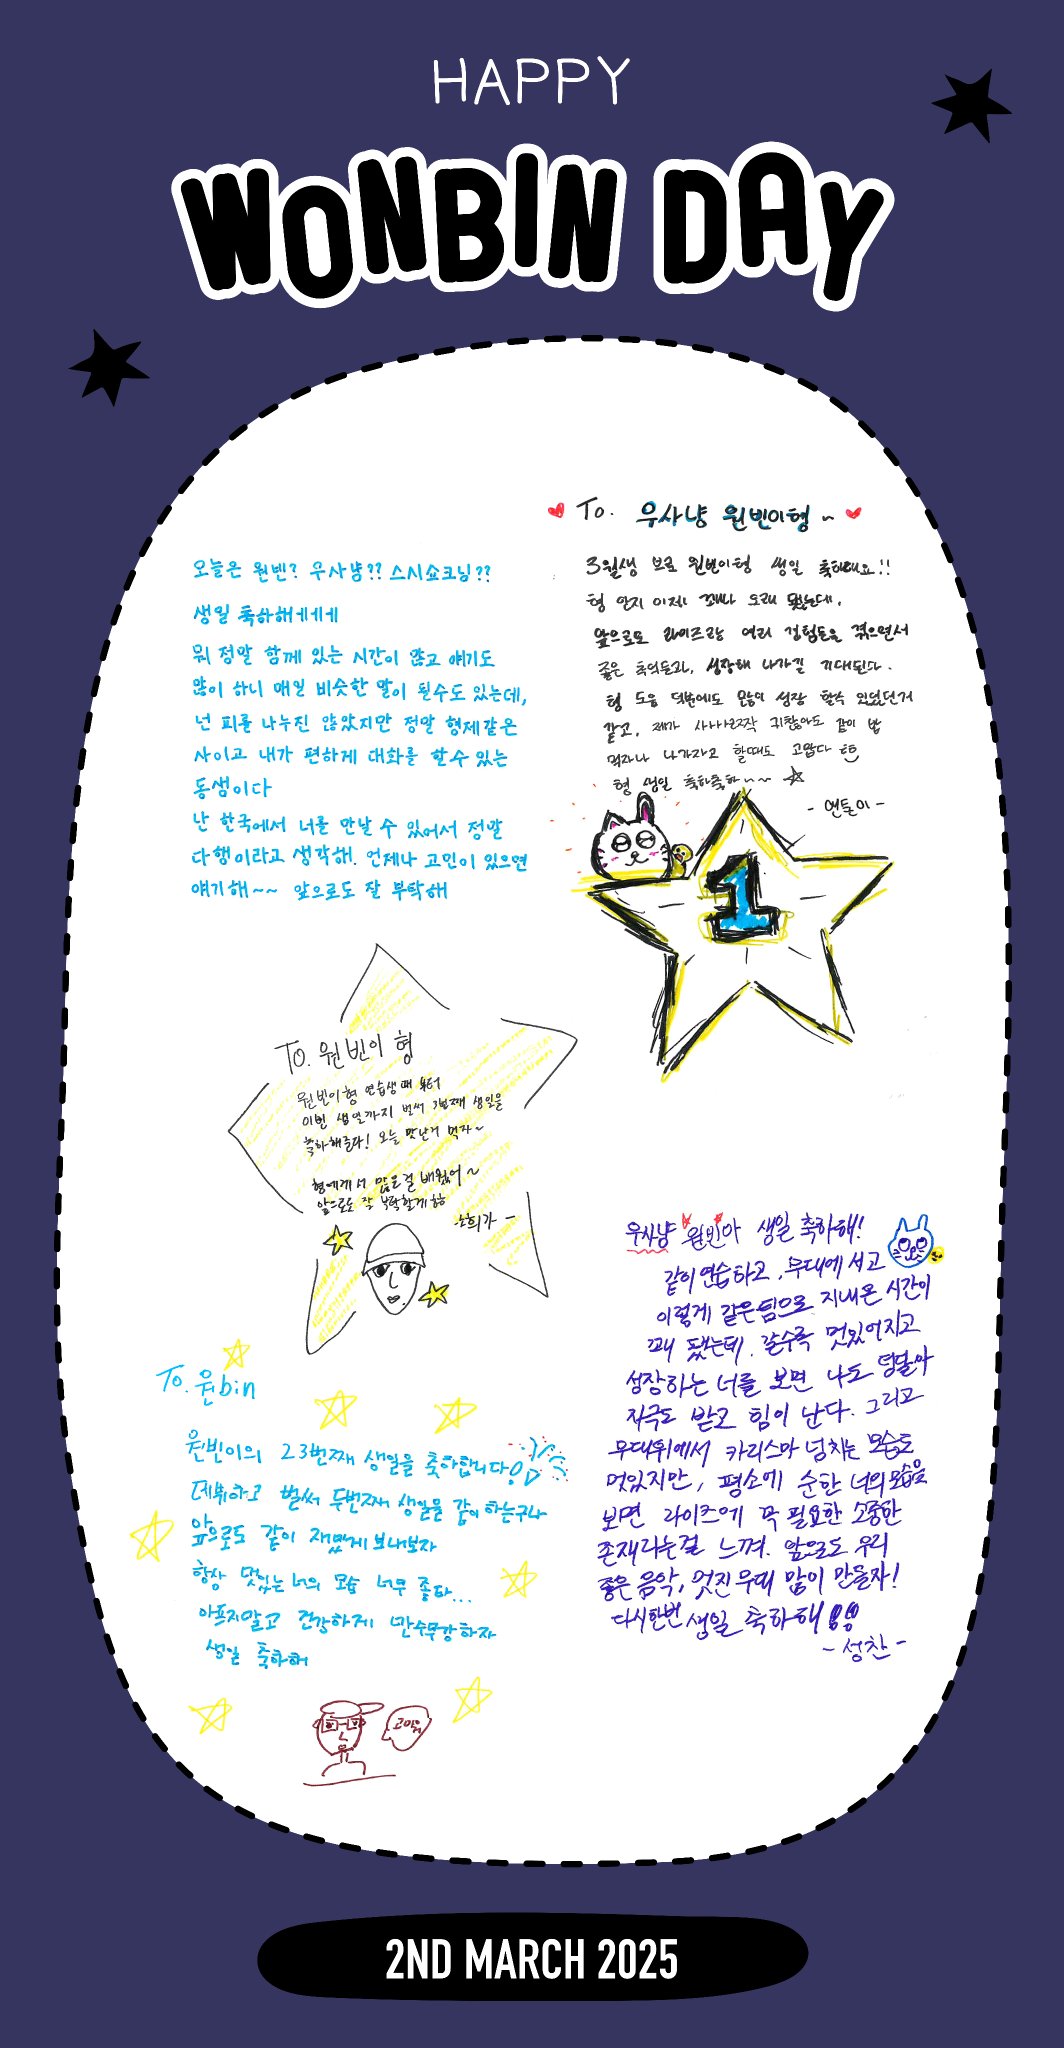 HAPPY
WONBIN DAY
오늘은 원빈? 우사냥?? 스시쇼크닝??
생일 축하해에에에
뭐 정말 함께 있는 시간이 많고 얘기도
많이 하니 매일 비슷한 말이 될수도 있는데,
넌 피를 나누진 않았지만 정말 형제같은
사이고 내가 편하게 대화를 할수 있는
동생이다
난 한국에서 너를 만날 수 있어서 정말
다행이라고 생각해. 언제나 고민이 있으면
얘기해~~ 앞으로도 잘 부탁해
To. 우사냥 원빈이형~
3월생 브로 원빈이형 생일 축하해요!!
형 안지 이제 꽤나 오래 됐는데,
앞으로도 라이즈로 여러 경험들을 겪으면서
좋은 추억들과, 성장해 나가길 기대된다.
형 도움 덕분에도 많이 성장 할수 있었던거
같고, 제가 귀찮아도 같이 밥
먹자나 나가자고 할때도 고맙다
형 생일 축하축하~~~
- 앤톤이 -
1
To. 원빈이 형
원빈이형 연습생 때 부터
이번 생일까지 벌써 3번째 생일을
축하해준다! 오늘 맛난거 먹자~
형에게서 많은걸 배웠어~
앞으로도 잘 부탁할게 ㅎㅎ
-소희가-
To. 원bin
원빈이의 23번째 생일을 축하합니다!
데뷔하고 벌써 두번째 생일을 같이 하는구나
앞으로도 같이 재밌게 보내보자
항상 멋있는 너의 모습 너무 좋다...
아프지말고 건강하게 만수무강하자
생일 축하해
고마워
우사냥 원빈아 생일 축하해!
같이 연습하고, 무대에 서고
이렇게 같은 팀으로 지내온 시간이
꽤 됐는데, 갈수록 멋있어지고
성장하는 너를 보면 나도 덩달아
자극도 받고 힘이 난다. 그리고
무대위에서 카리스마 넘치는 모습도
멋있지만, 평소에 순한 너의 모습을
보면 라이즈에 꼭 필요한 소중한
존재라는걸 느껴. 앞으로도 우리
좋은 음악, 멋진 무대 많이 만들자!
다시한번 생일 축하해!!
- 성찬 -
2ND MARCH 2025